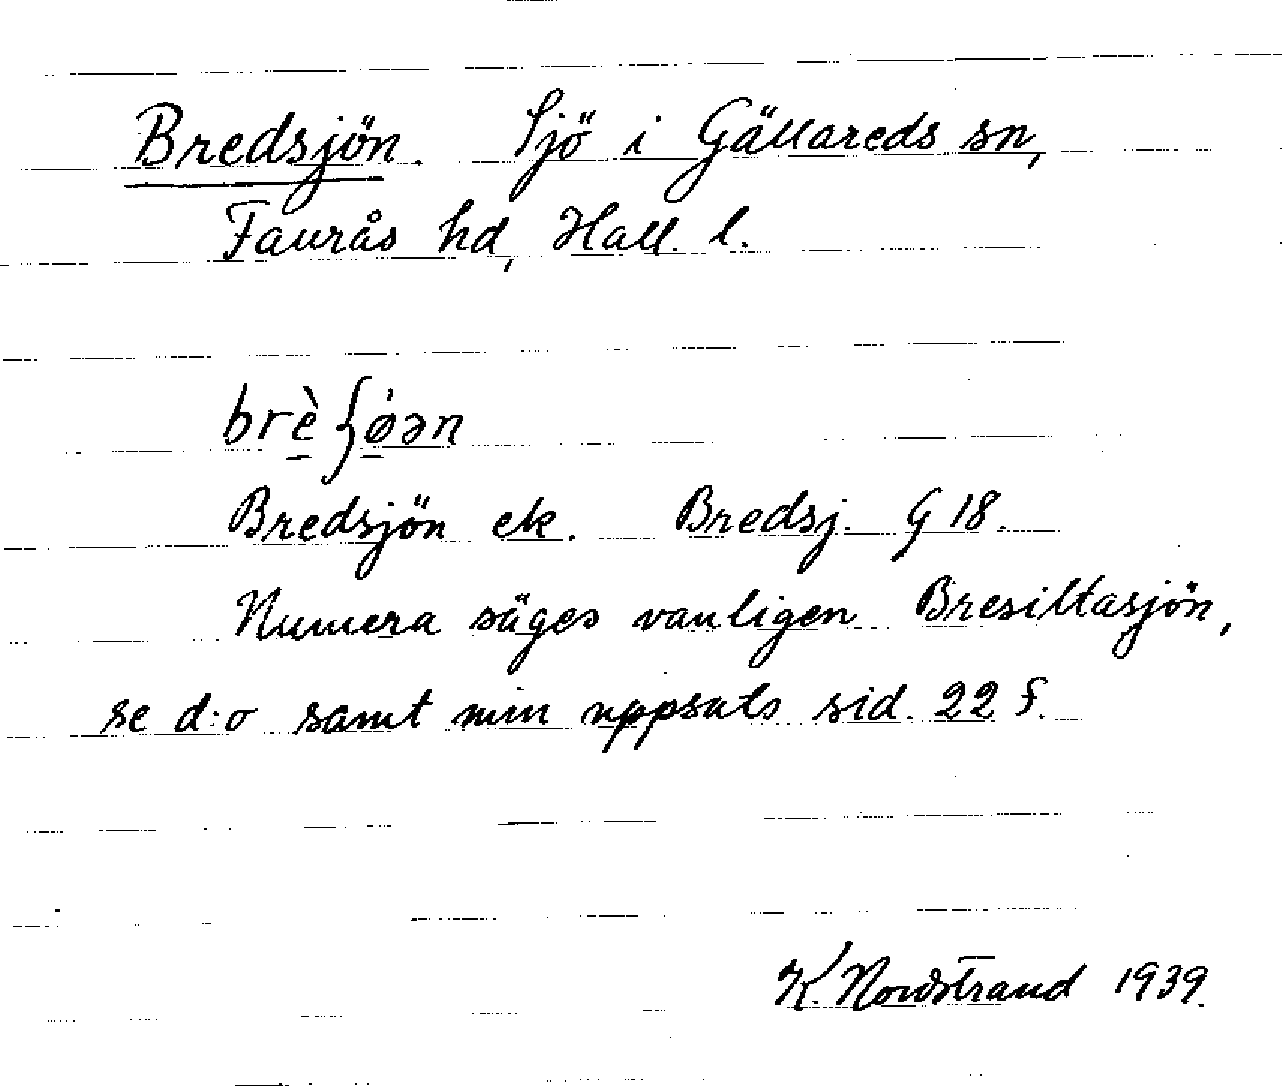 Bredsjön. Sjö i Gällareds sn,
Faurås hd, Hall. l.
brè̠ʃø̠̀ən
Bredsjön ek. Bredsj. G 18.
Numera säges vanligen Bresiltasjön,
se d:o samt min uppsats sid. 22 f.
K. Nordstrand 1939.